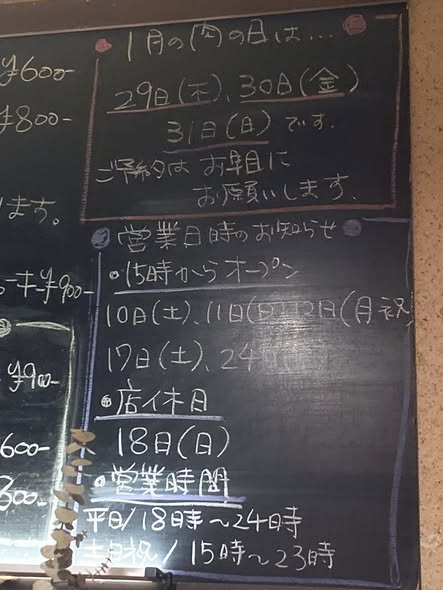 ¥600-
¥800-
ます。
ーキ¥900-
¥900-
600-
300-
1月の肉の日は...
29日(木)、30日(金)
31日(日)です.
ご予約はお早目に
お願いします.
営業日時のお知らせ
•15時からオープン
10日(土)、11日(日)12日(月祝)
17日(土)、24
•店休日
18日(日)
•営業時間
平日/18時〜24時
土日祝/15時〜23時